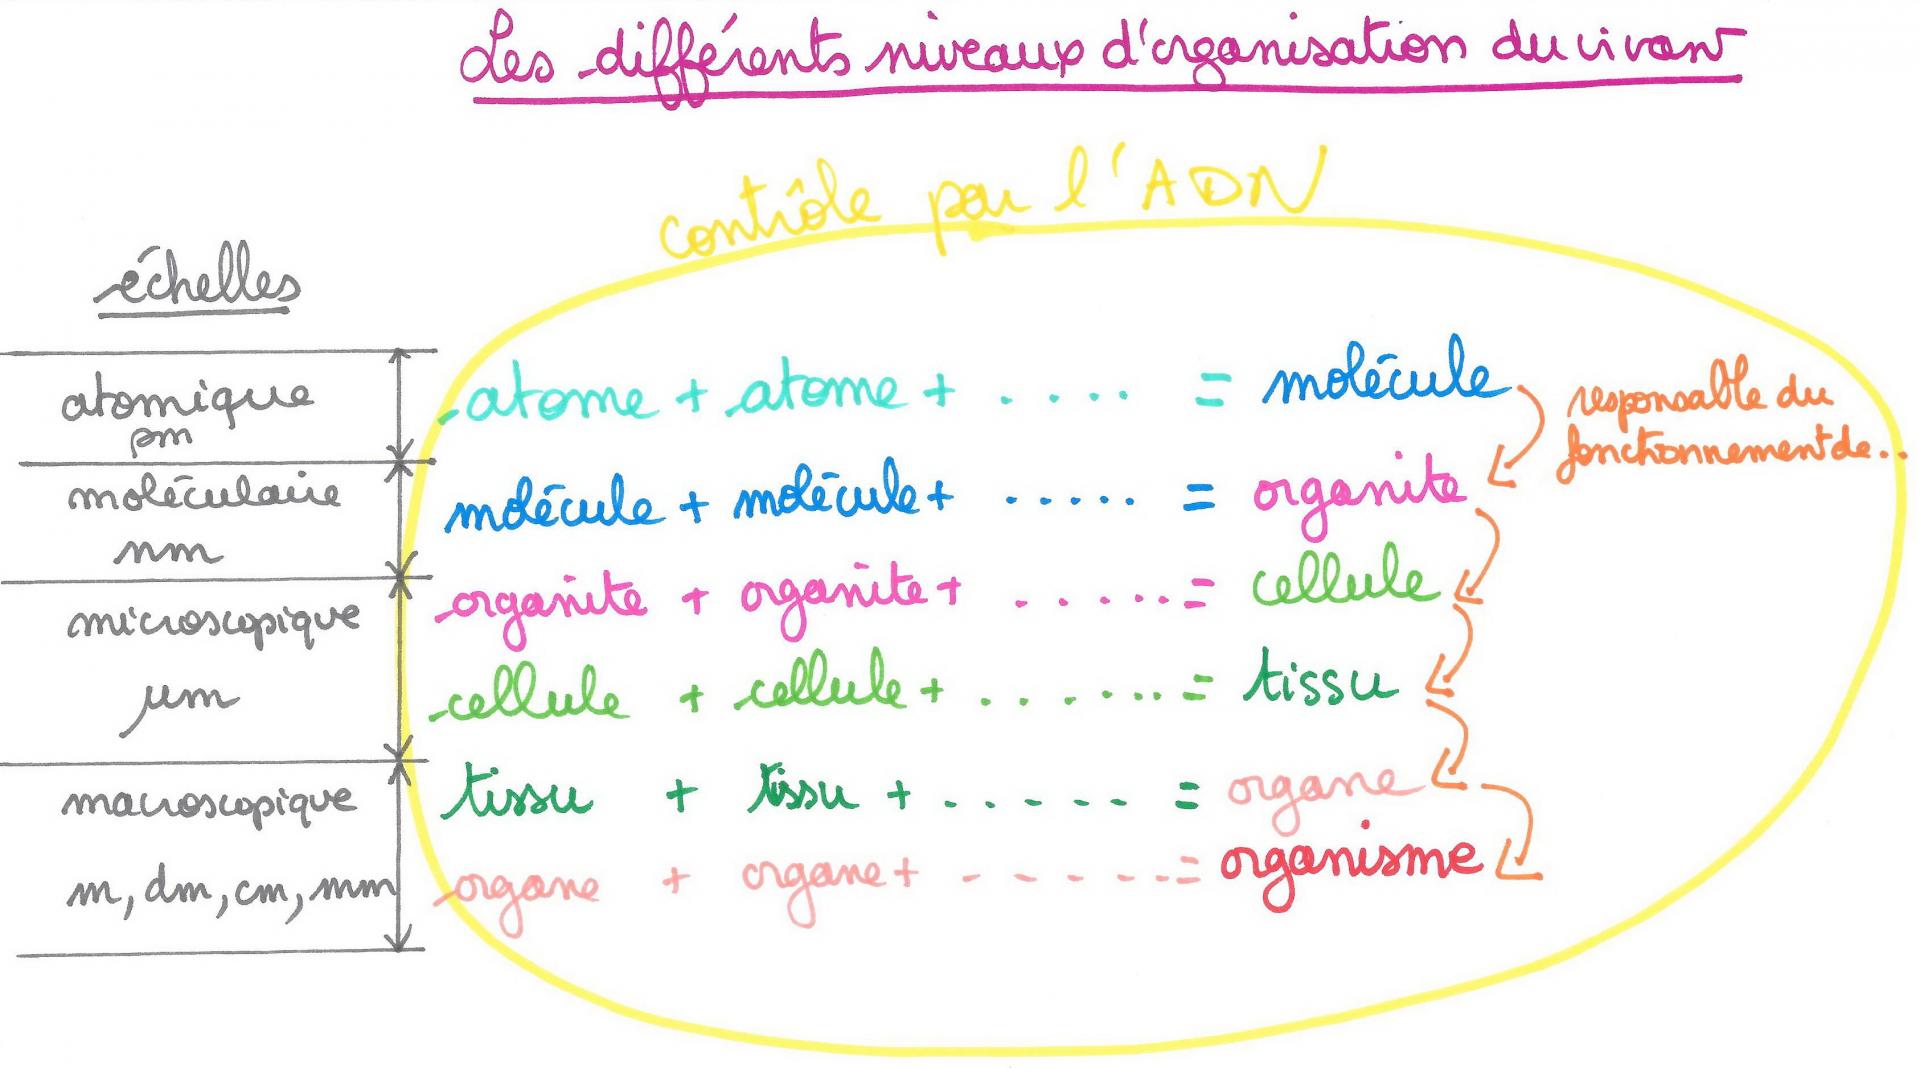 Les différents niveaux d'organisation du vivant
contrôle par l'ADN
échelles
atomique
pm
atome + atome + . . . . = molécule
responsable du
fonctionnement de..
moléculaire
nm
molécule + molécule + ...... = organite
microscopique
µm
organite + organite + ...... = cellule
cellule + cellule + ....... = tissu
macroscopique
m, dm, cm, mm
tissu + tissu + . . - - - - = organe
organe + organe + - - - - - . = organisme